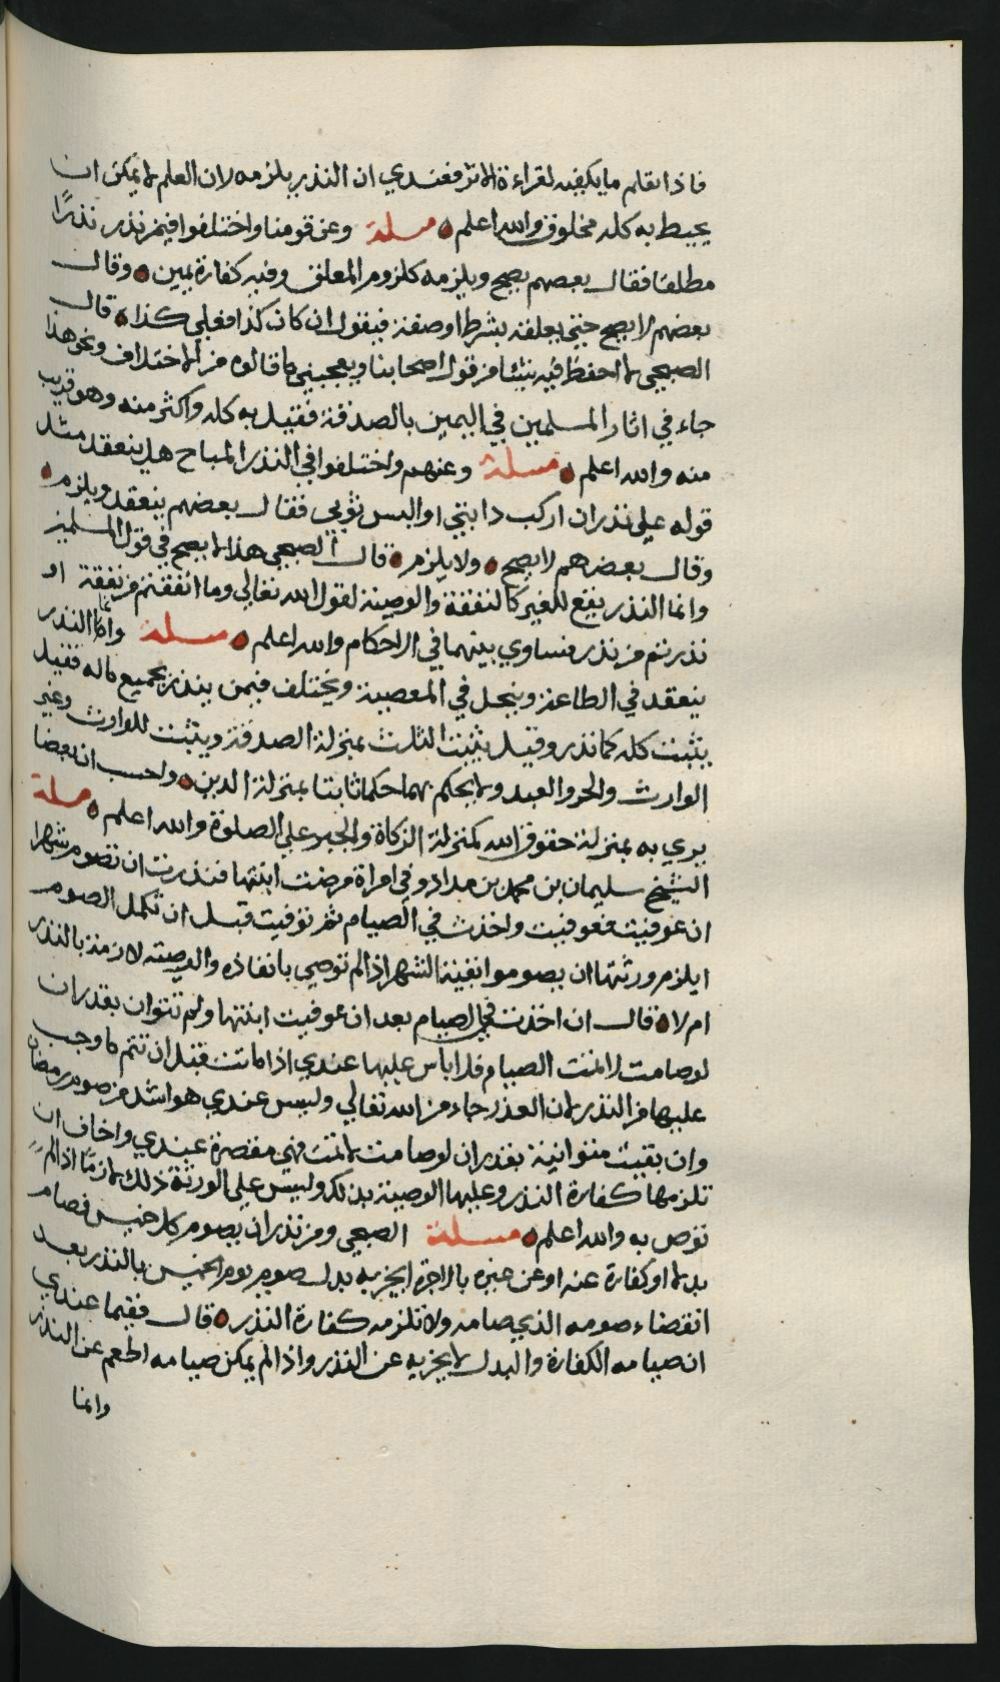 فاذا تعلم ما يكفيه لقراءة الاثر فعندي ان النذر يلزمه لان العلم لا يمكن ان
يحيط به كله مخلوق والله اعلم مسلة وعن قومنا واختلفوا فيمن نذر نذرًا
مطلقا فقال بعضهم يصح ويلزمه كلزوم المعلق وفيه كفارة يمين وقال
بعضهم لا يصح حتى يعلقه بشرط او صفة فيقول ان كان كذا فعلي كذا قال
الصبحي لا احفظ فيه شيئا من قول اصحابنا ويعجبني ما قالوه من الاختلاف ونحو هذا
جاء في اثار المسلمين في اليمين بالصدقة فقيل به كله واكثر منه وهو قريب
منه والله اعلم مسلة وعنهم واختلفوا في النذر المباح هل ينعقد مثل
قوله علي نذر ان اركب دابتي او البس ثوبي فقال بعضهم ينعقد ويلزم
وقال بعضهم لا يصح ولا يلزم قال الصبحي هذا لا يصح في قول المسلمين
وانما النذر يقع للغير كالنفقة والوصية لقول الله تعالى وما انفقتم من نفقة او
نذرتم من نذر فساوي بينهما في الاحكام والله اعلم مسلة وانما النذر
ينعقد في الطاعة وينحل في المعصية ويختلف فيمن ينذر بجميع ماله فقيل
يثبت كله كما نذر وقيل يثبت الثلث بمنزلة الصدقة ويثبت للوارث وغير
الوارث والحر والعبد ولا يحكم بهما حكما ثابتا بمنزلة الدين واحسب ان بعضا
يري به بمنزلة حقوق الله كمنزلة الزكاة والجبر علي الصلوة والله اعلم مسلة
الشيخ سليمان بن محمد بن مداد و في امراة مرضت ابنتها فنذرت ان تصوم شهرا
ان عوفيت فعوفيت واخذت في الصيام ثم توفيت قبل ان تكمل الصوم
ايلزم ورثتها ان يصوموا بقية الشهر اذا لم توصي بانفاذه والوصية لازمة بالنذر
ام لا قال ان اخذت في الصيام بعد ان عوفيت ابنتها ولم تتوان بقدر ان
لو صامت لاتمت الصيام فلا باس عليها عندي اذا ماتت قبل ان تتم ما وجب
عليها من النذر لان العذر جاء من الله تعالي وليس عندي هو اشد من صوم رمضان
وان بقيت متوانية بقدر ان لو صامت لاتمت فهي مقصرة عندي واخاف ان
تلزمها كفارة النذر وعليها الوصية بذلك وليس علي الورثة ذلك لازمًا اذا لم
توص به والله اعلم مسلة الصبحي ومن نذر ان يصوم كل خميس فصام
بدلا او كفارة عنه او عن غيره بالاجرة ايجزيه بدل صوم يوم الخميس بالنذر بعد
انقضاء صومه الذي صامه ولا تلزمه كفارة النذر قال ففيما عندي
ان صيامه الكفارة والبدل لا يجزيه عن النذر واذا لم يمكن صيامه اطعم عن النذر
وانما